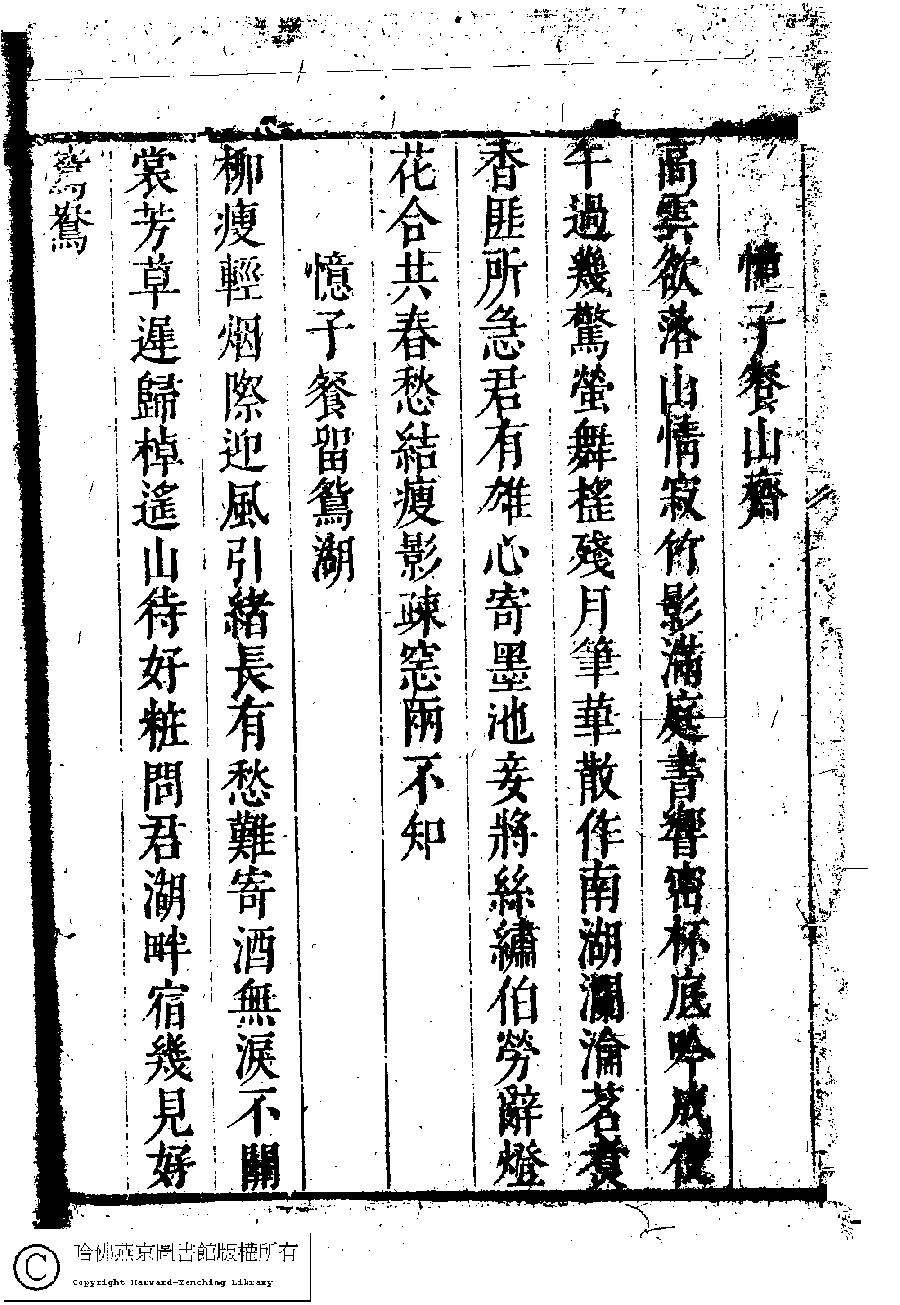 憶子餐山齋
高雲欲落山情寂竹影滿庭書響密杯底吟成夜
午過幾驚螢舞搖殘月筆華散作南湖瀾淪茗煑
香匪所急君有雄心寄墨池妾將絲繡伯勞辭燈
花合共春愁結瘦影疎窓兩不知
憶子餐留鴛湖
柳瘦輕烟際迎風引緒長有愁難寄酒無淚不關
裳芳草遲歸棹遙山待好粧問君湖畔宿幾見好
鴛鴦
哈佛燕京圖書館版權所有
Copyright Harvard-Yenching Library